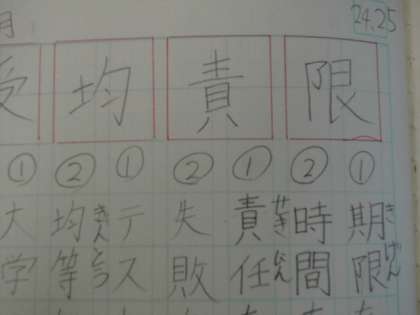 月
24.25
限
① 期限
きげん
② 時間
責
① 責任
せきにん
② 失敗
均
① テス
② 均等
きんとう
受
① 大学